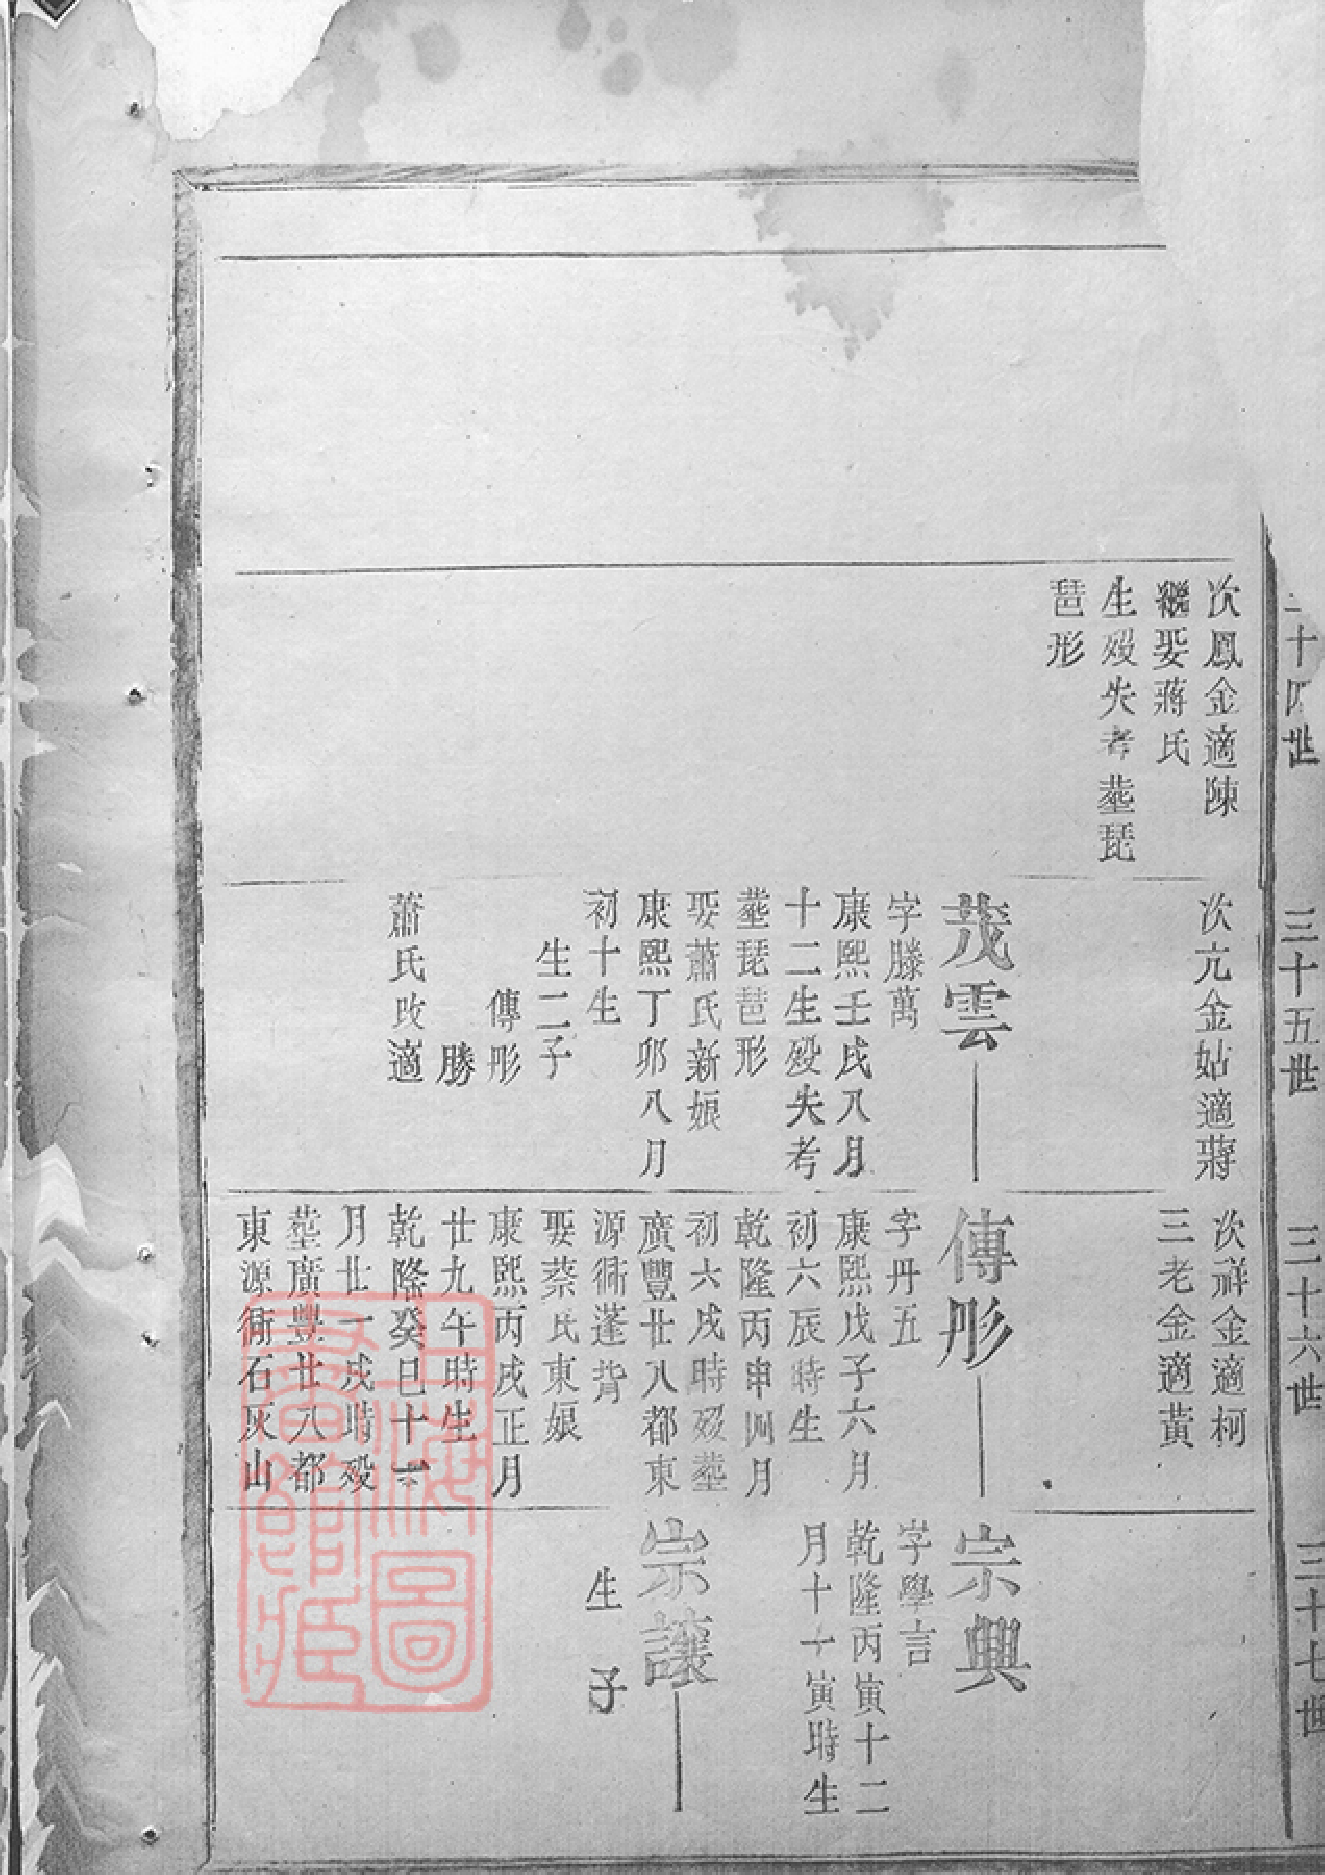 三十四世
次鳳金適陳
繼娶蔣氏
生歿失考塟琵
琶形
三十五世
次亢金姑適蔣
茂雲
字滕萬
康熙壬戌八月
十二生歿失考
塟琵琶形
娶蕭氏新娘
康熙丁卯八月
初十生
生二子
傳彤
勝
蕭氏改適
三十六世
次祥金適柯
三老金適黃
傳彤
字丹五
康熙戊子六月
初六辰時生
乾隆丙申四月
初六戌時歿塟
廣豐廿八都東
源衕蓬背
娶蔡氏東娘
康熙丙戌正月
廿九午時生
乾隆癸巳十一
月廿一戌時歿
塟廣豐廿八都
東源衕石灰山
三十七世
宗興
字學言
乾隆丙寅十二
月十十寅時生
宗讓
生子
上海圖
書館藏